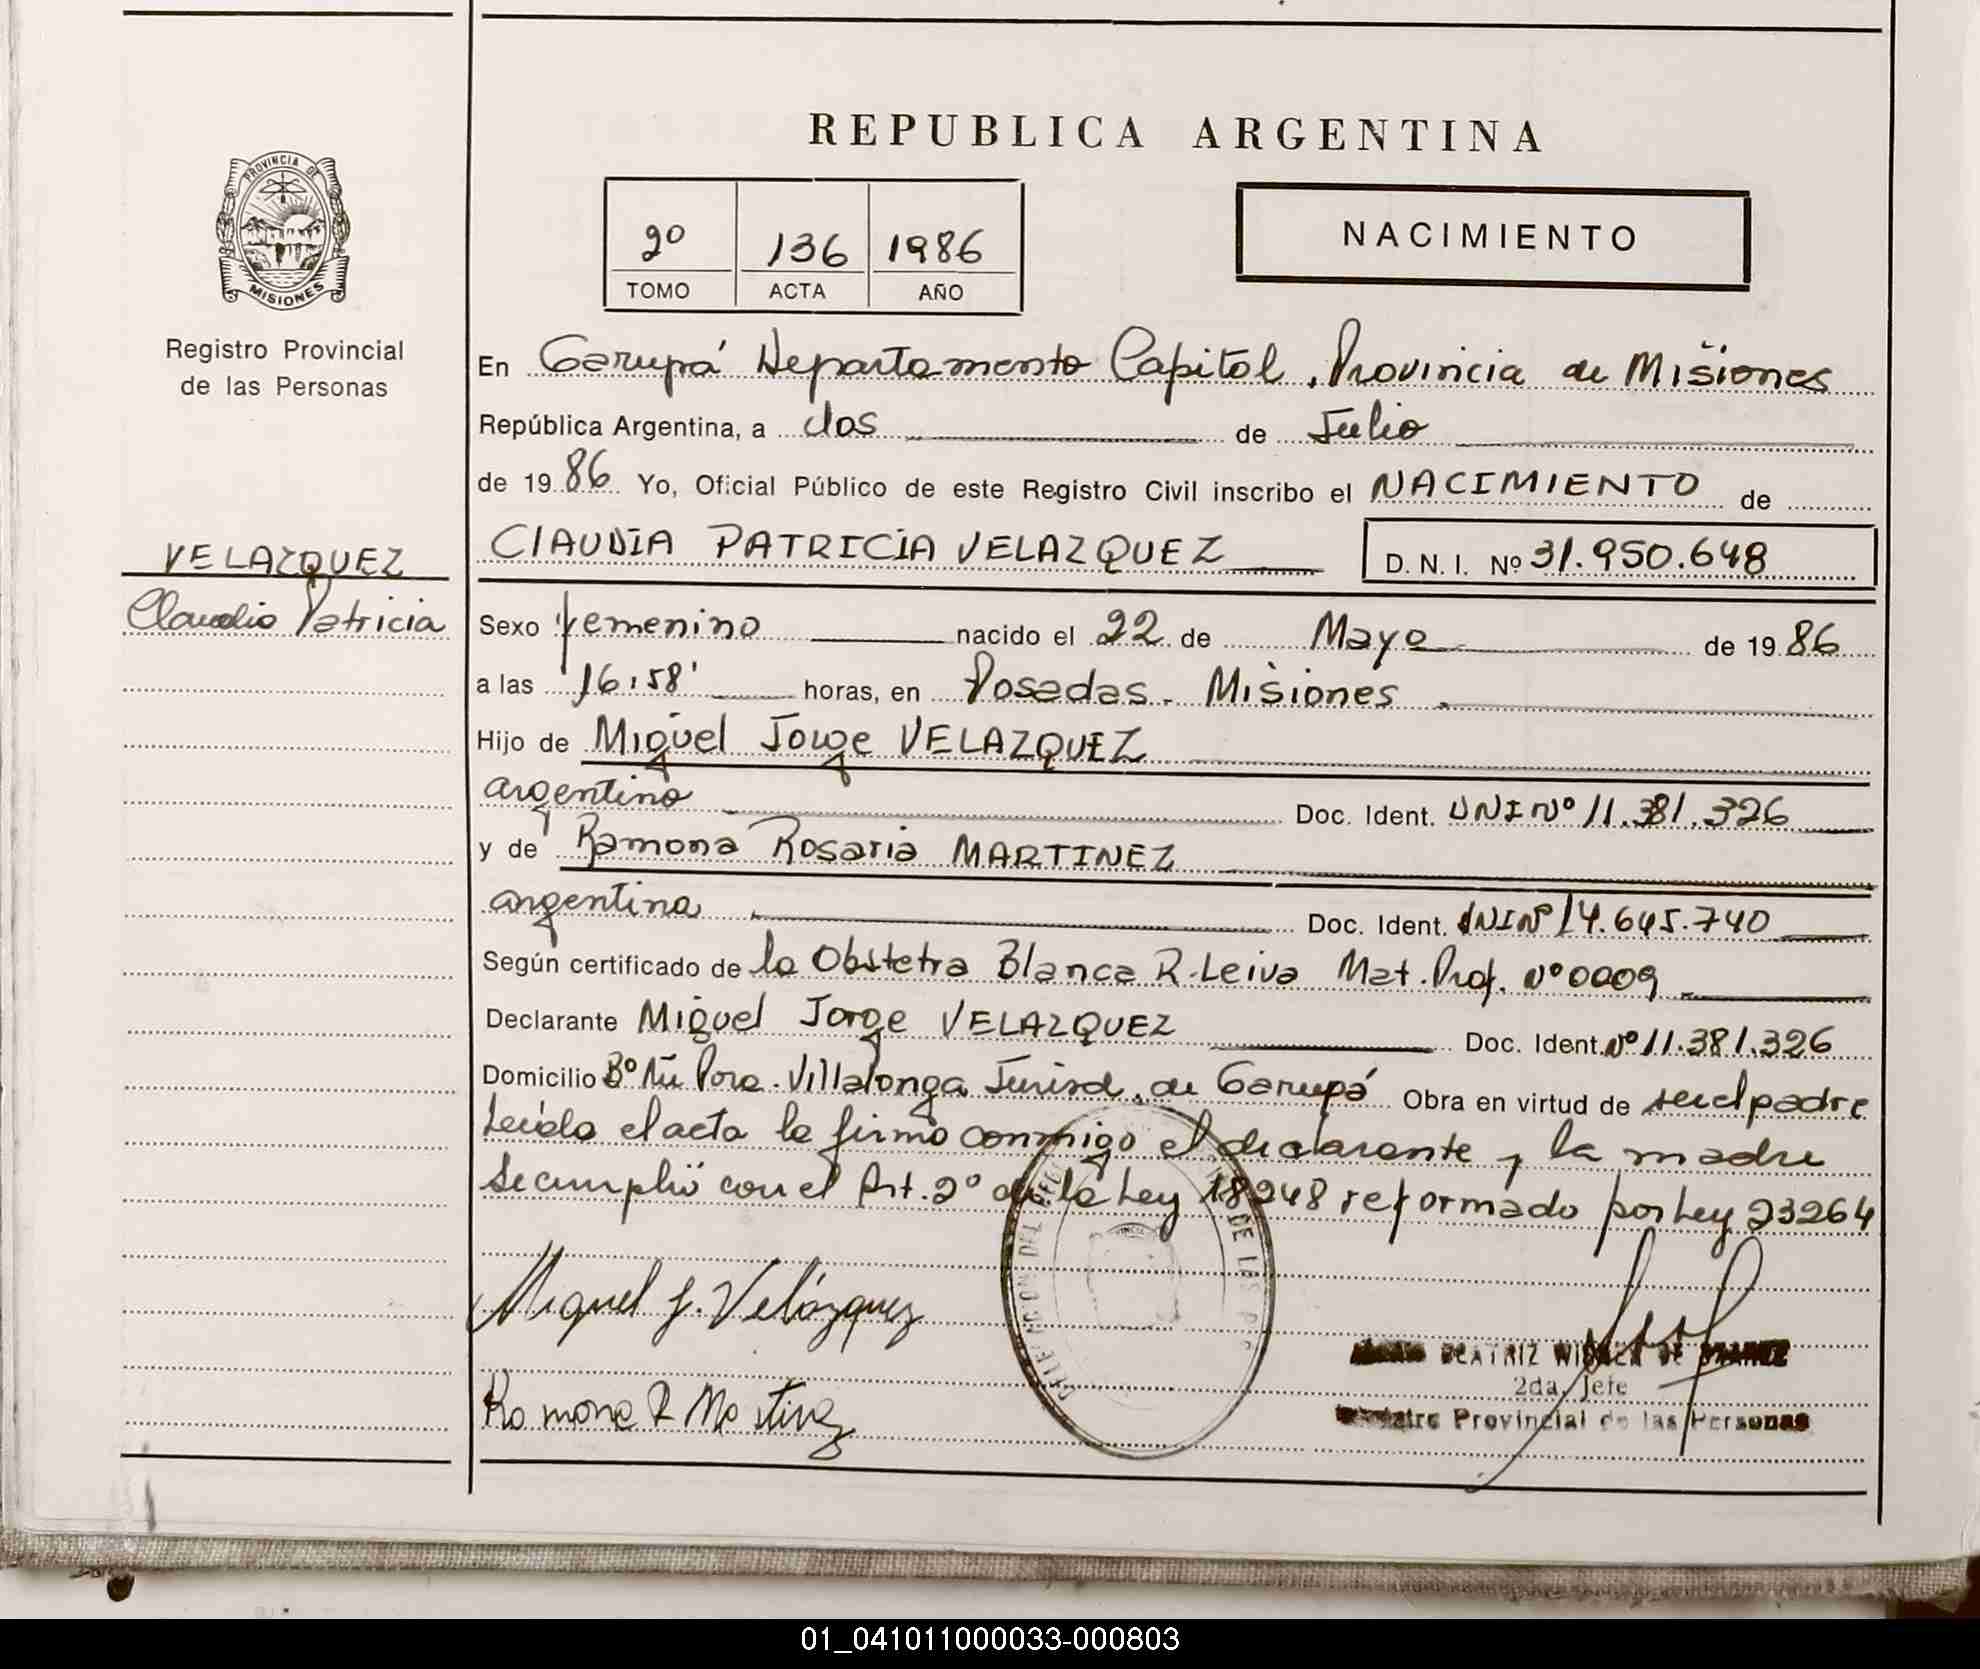 REPUBLICA ARGENTINA
PROVINCIA DE
MISIONES
Registro Provincial
de las Personas
2º 136 1986
TOMO ACTA AÑO
NACIMIENTO
En Garupá Departamento Capital, Provincia de Misiones
República Argentina, a dos de Julio
de 1986 Yo, Oficial Público de este Registro Civil inscribo el NACIMIENTO de
VELAZQUEZ
Claudia Patricia
CLAUDIA PATRICIA VELAZQUEZ D. N. I. Nº 31.950.648
Sexo femenino nacido el 22 de Mayo de 1986
a las 16:58' horas, en Posadas - Misiones
Hijo de Miguel Jorge VELAZQUEZ
argentino Doc. Ident. DNI Nº 11.381.326
y de Ramona Rosaria MARTINEZ
argentina Doc. Ident. DNI Nº 14.645.740
Según certificado de la Obstetra Blanca R. Leiva Mat. Prof. Nº 0009
Declarante Miguel Jorge VELAZQUEZ Doc. Ident. Nº 11.381.326
Domicilio Bº Ñu Pora - Villalonga Jurisd. de Garupá Obra en virtud de ser el padre
Leída el acta la firma conmigo el declarante y la madre
Se cumplió con el Art. 2º de la Ley 18248 reformado por Ley 23264
Miguel J. Velázquez
Ramona R Martinez
BEATRIZ DE
2da. Jefe
Provincial de las Personas
01_041011000033-000803